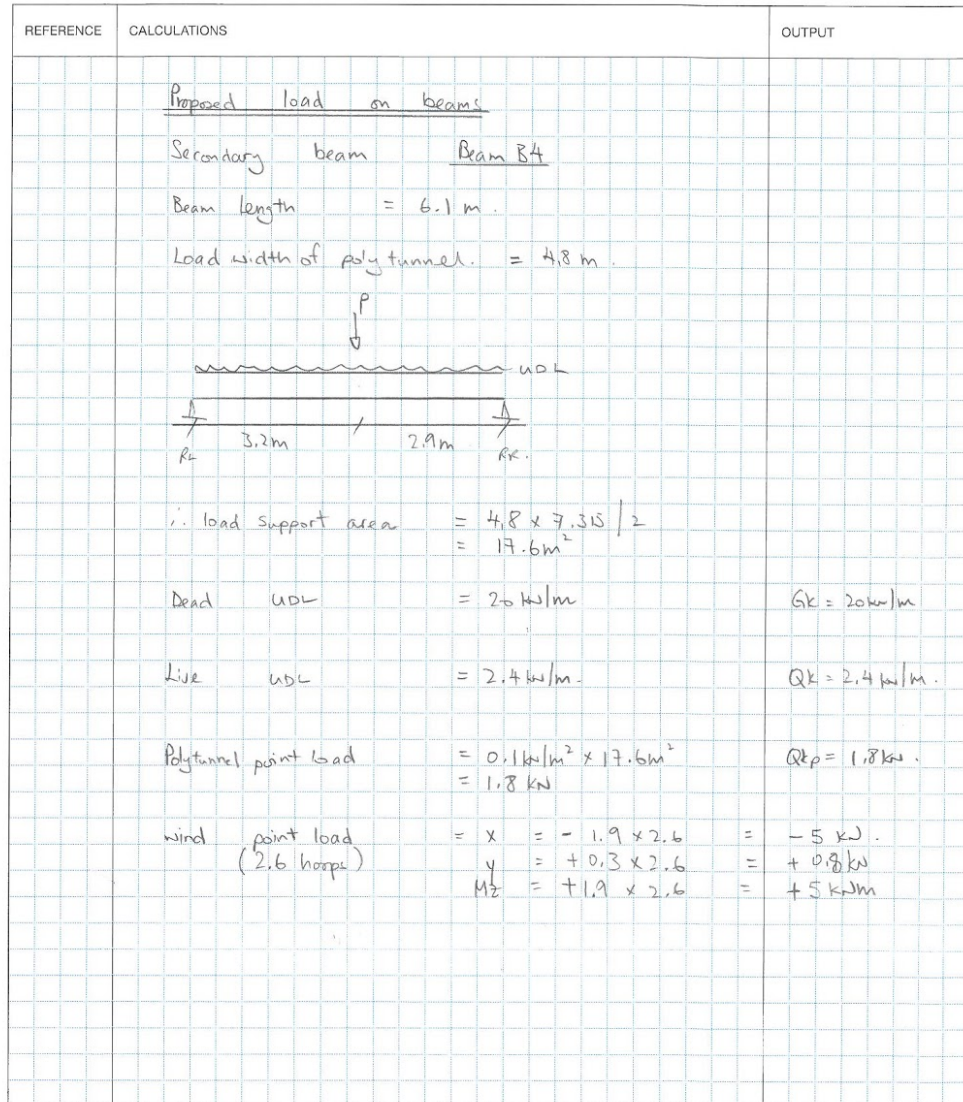 REFERENCE CALCULATIONS OUTPUT
Proposed load on beams
Secondary beam Beam B4
Beam length = 6.1 m.
Load width of polytunnel. = 4.8 m.
P
UDL
3.2m 2.9m
RL RR.
∴ load support area = 4.8 x 7.315 / 2
= 17.6m²
Dead UDL = 20 kN/m Gk = 20kN/m
Live UDL = 2.4 kN/m. Qk = 2.4 kN/m.
Polytunnel point load = 0.1kN/m² x 17.6m² Qkp = 1.8kN.
= 1.8 kN
wind point load = x = - 1.9 x 2.6 = - 5 kN.
(2.6 hoops) y = + 0.3 x 2.6 = + 0.8kN
Mz = +1.9 x 2.6 = + 5 kNm